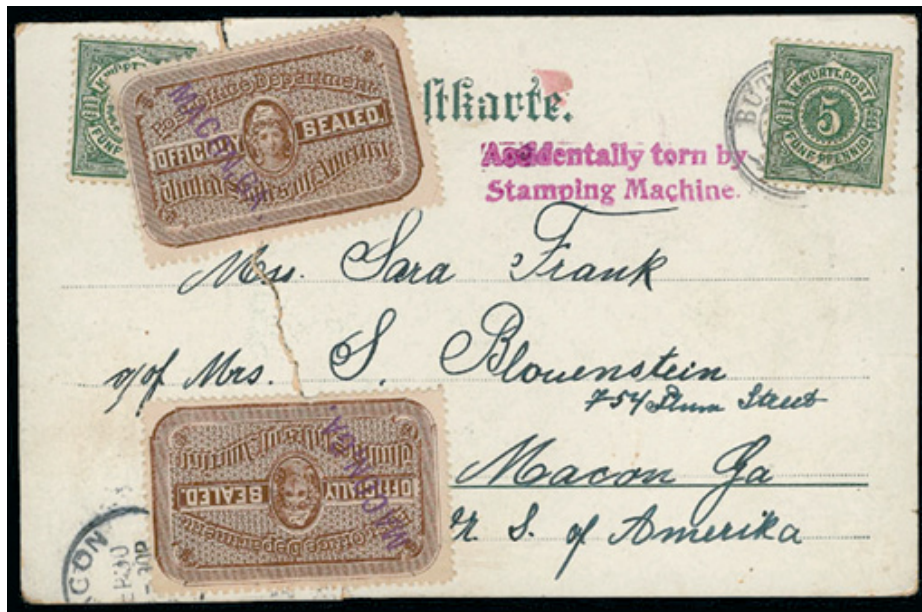 Post Office Department
OFFICIALLY SEALED.
United States of America
MACON, GA.
stkarte.
Accidentally torn by
Stamping Machine.
BUT
K. WÜRTT. POST
5
FÜNF PFENNIG
FÜNF
Mrs. Sara Frank
c/of Mrs. S. Blouenstein
754 Plum Street
Macon Ga
U. S. of Amerika
Post Office Department
OFFICIALLY SEALED.
United States of America
MACON, GA.
CON